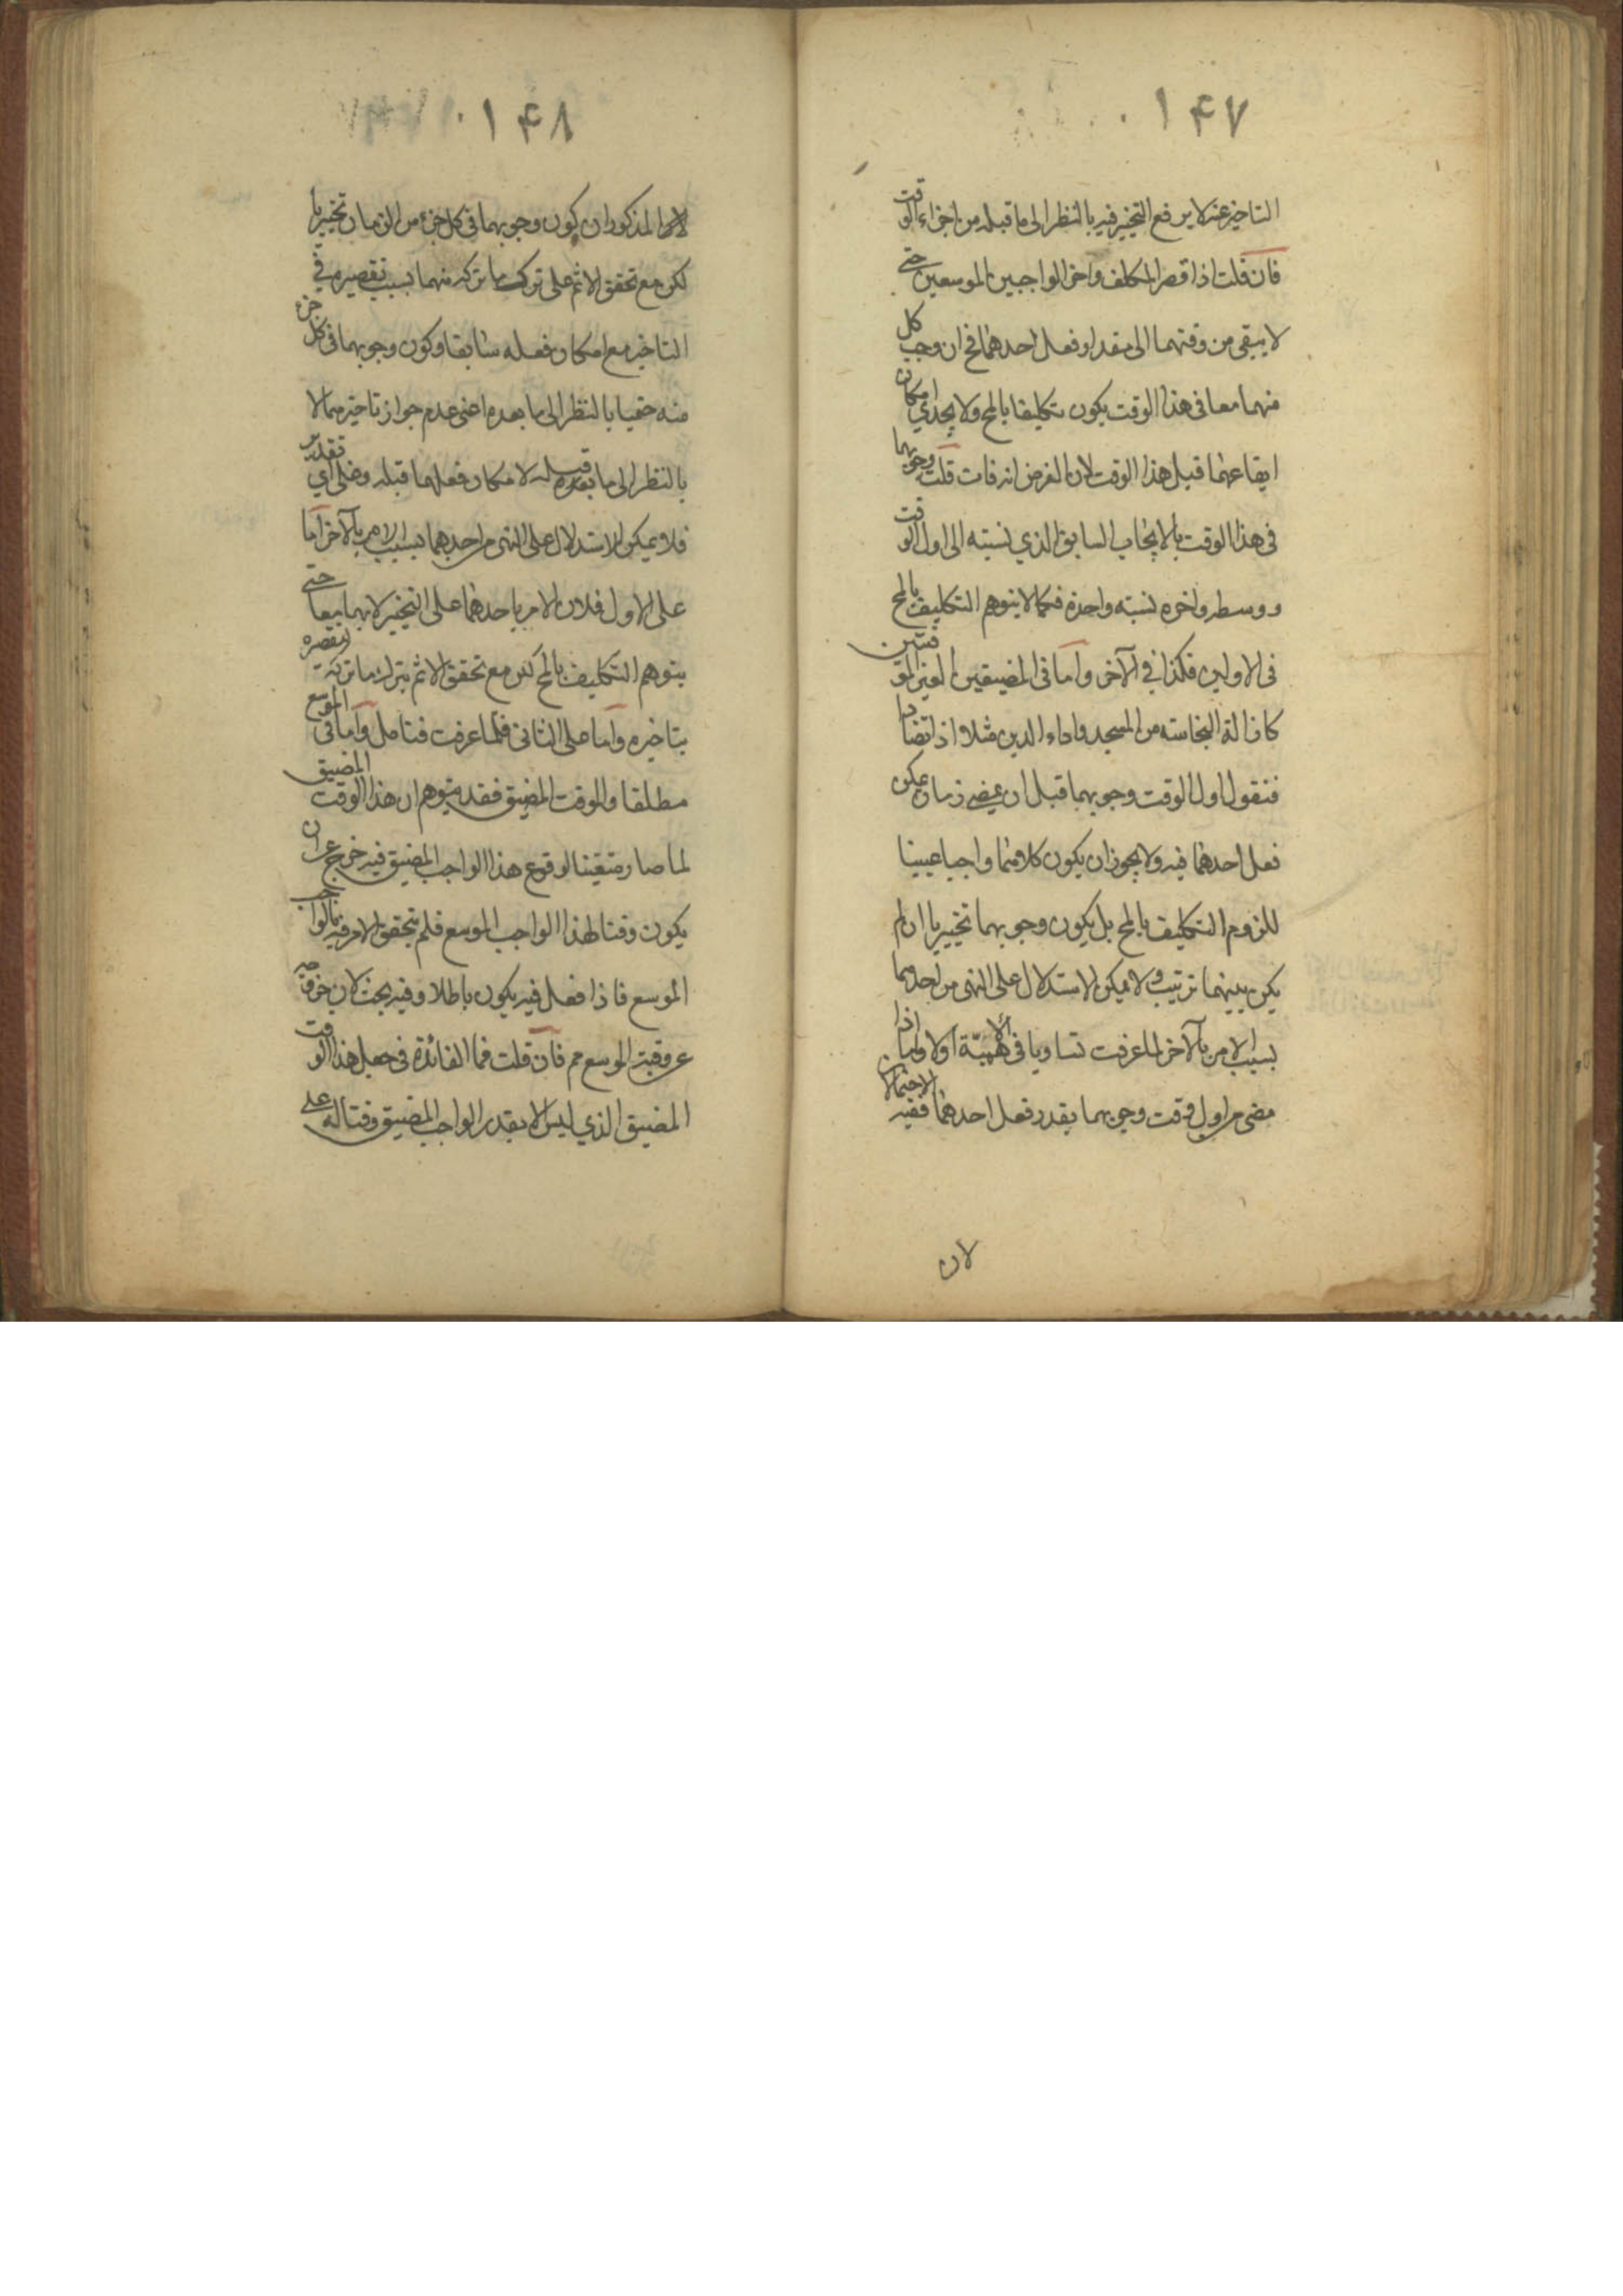 ۱۴۷
التاخير عنه لا يرفع التخيير فيه بالنظر الى ما قبله من اجزاء الوقت
فان قلت اذا قصر المكلف واخر الواجبين الموسعين حتى
لا يبقى من وقتهما الى مقدار فعل احدهما فح ان وجب كل
منهما معا في هذا الوقت يكون تكليفا بالمح ولا يجدي امكان
ايقاعهما قبل هذا الوقت لان الفرض انه فات قلت وجوبهما
في هذا الوقت بالايجاب السابق الذي نسبته الى اول الوقت
ووسطه واخره نسبته واحدة فكما لا يتوهم التكليف بالمح
في الاولين فكذا في الآخر واما في المضيقين الغير الموقتين
كازالة النجاسته من المسجد واداء الدين مثلا اذا تضادا
فنقول اول الوقت وجوبهما قبل ان يمضي زمان يمكن
فعل احدهما فيه ولا يجوز ان يكون كلا منهما واجبا عينيا
للزوم التكليف بالمح بل يكون وجوبهما تخييريا ان لم
يكن بينهما ترتيب ولا يمكن الاستدلال على النهي من احدهما
بسبب الامر بالآخر لما عرفت تساويا في الاهمية اولا واما اذا
مضى من اول وقت وجوبهما بقدر فعل احدهما ففيه الاحتمالان
لان
۱۴۸
المذكوران كون وجوبهما في كل جزء من الزمان تخييريا
لكن مع تحقق الاثم على ترك ما تركه منهما بسبب تقصيره في
التاخير مع امكان فعله سابقا وكون وجوبهما في كل جزء
منه حتميا بالنظر الى ما بعده اعني عدم جواز تاخيرهما لا
بالنظر الى ما قبله لامكان فعلهما قبله وعلى اي تقدير
فلا يمكن الاستدلال على النهي من احدهما بسبب الامر بالآخر اما
على الاول فلان الامر باحدهما على التخيير لا بهما معا حتى
يتوهم التكليف بالمح لكن مع تحقق الاثم بترك ما تركه لتقصيره
بتاخيره واما على الثاني فلما عرفت فتامل واما في الموسع
مطلقا والموقت المضيق فقد يتوهم ان هذا الوقت المضيق
لما صار متعينا لوقوع هذا الواجب المضيق فيه خرج عن ان
يكون وقتا لهذا الواجب الموسع فلم يتحقق الامر فيه بالواجب
الموسع فاذا فعل فيه يكون باطلا وفيه بحث لان خروجه
عن وقتية الموسع مم فان قلت فما الفائدة في جعل هذا الوقت
المضيق الذي ليس الا بقدر الواجب المضيق وقتا له على